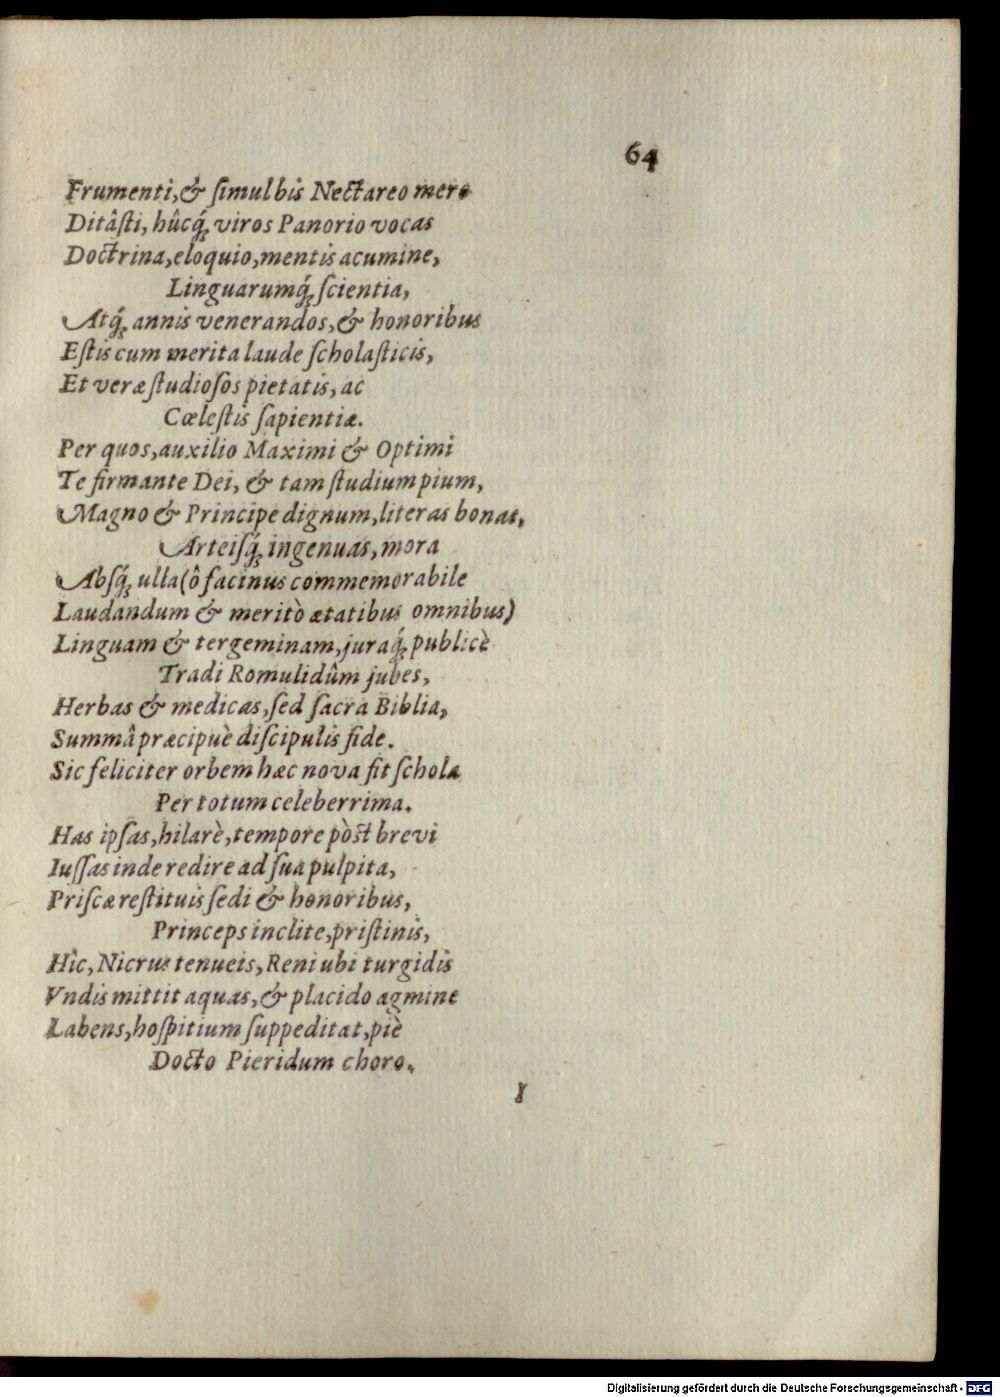 64
Frumenti, & ſimul bis Nectareo mero
Ditâſti, hûcq́ꝫ viros Panorio vocas
Doctrina, eloquio, mentis acumine,
Linguarumq́ꝫ ſcientia,
Atq́ꝫ annis venerandos, & honoribus
Eſtis cum merita laude ſcholaſticis,
Et veræ ſtudioſos pietatis, ac
Cœleſtis ſapientiæ.
Per quos, auxilio Maximi & Optimi
Te firmante Dei, & tam ſtudium pium,
Magno & Principe dignum, literas bonas,
Arteiſq́ꝫ ingenuas, mora
Abſq́ꝫ ulla (ô facinus commemorabile
Laudandum & meritò ætatibus omnibus)
Linguam & tergeminam, juraq́ꝫ publicè
Tradi Romulidûm jubes,
Herbas & medicas, ſed ſacra Biblia,
Summâ præcipuè diſcipulis fide.
Sic feliciter orbem hæc nova fit ſchola
Per totum celeberrima.
Has ipſas, hilarè, tempore pòst brevi
Iuſſas inde redire ad ſua pulpita,
Priſcæ reſtituis ſedi & honoribus,
Princeps inclite, priſtinis,
Hîc, Nicrus tenueis, Reni ubi turgidis
Vndis mittit aquas, & placido agmine
Labens, hoſpitium ſuppeditat, piè
Docto Pieridum choro.
I
Digitalisierung gefördert durch die Deutsche Forschungsgemeinschaft - DFG